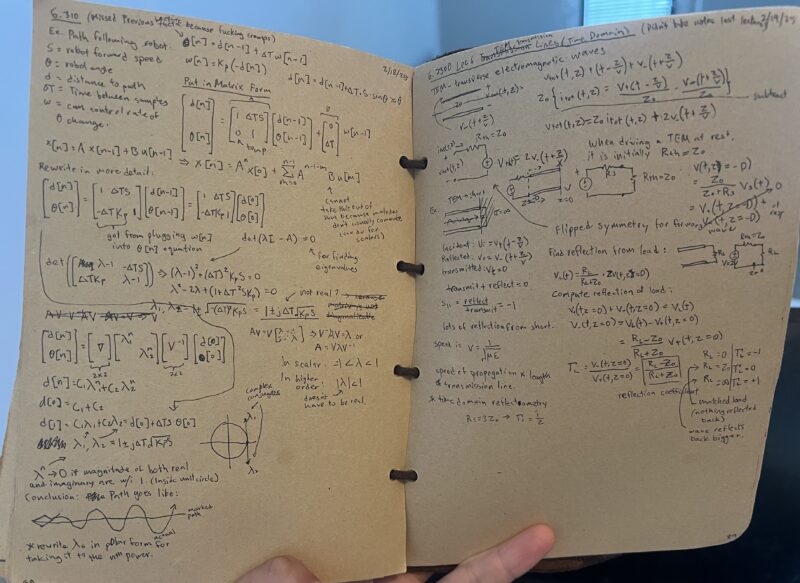 6.310 (Missed Previous lecture because fucking cramps)
2/18/25
Ex. Path following robot
S = robot forward speed
θ = robot angle
d = distance to path
ΔT = Time between samples
w = can control rate of
θ change.
θ[n] = θ[n-1] + ΔT w[n-1]
w[n] = Kp(-d[n])
d[n] = d[n-1] + ΔT·S·sinθ ≈ θ
Put in Matrix Form
[d[n] θ[n]] = [1 ΔTS 0 1] [d[n-1] θ[n-1]] + [0 ΔT] w[n-1]
x[n] = A x[n-1] + B u[n-1] ⇒ x[n] = Aⁿ x[0] + Σ A B u[m]
cannot
take this out of
sum because matrices
don't usually commute
(can do for
scalars)
Rewrite in more detail:
[d[n] θ[n]] = [1 ΔTS -ΔTKp 1] [d[n-1] θ[n-1]] = [1 ΔTS -ΔTKp 1] [d[0] θ[0]]
got from plugging w[n]
into θ[n] equation
det(λI - A) = 0
for finding
eigenvalues
det([λ-1 -ΔTS ΔTKp λ-1]) ⇒ (λ-1)² + (ΔT)²KpS = 0
λ² - 2λ + (1+ΔT²SKp) = 0
λ₁, λ₂ = 1 ± √-(ΔT)²KpS = 1 ± jΔT√KpS
not real?
[d[n] θ[n]] = [V] [λ₁ⁿ λ₂ⁿ] [V⁻¹] [d[0] θ[0]]
2x2
2x2
AV = V[λ₁ λ₂] ⇒ V⁻¹AV = λ or
A = VλV⁻¹
In scalar: -1 < λ < 1
In higher
order: |λ| < 1
doesn't
have to be real.
d[n] = C₁λ₁ⁿ + C₂λ₂ⁿ
d[0] = C₁ + C₂
d[1] = C₁λ₁ + C₂λ₂ = d[0] + ΔTS·θ[0]
λ₁, λ₂ = 1 ± jΔT√KpS
complex
conjugates
λ₁
λ₂
λⁿ → 0 if magnitude of both real
and imaginary are w/i 1 (inside unit circle)
Conclusion: Path goes like:
path
actual
* rewrite λₙ in polar form for
taking it to the nth power.
6.2300 Lec 6 Transmission Lines (Time Domain) (Didn't take notes last lecture) 2/19/25
TEM - transverse electromagnetic waves
Vtot(t,z) = V₊(t - z/v) + V₋(t + z/v)
Z₀ { itot(t,z) = V₊(t - z/v)/Z₀ - V₋(t + z/v)/Z₀ }
subtract
Vtot(t,z) = Z₀ itot(t,z) + 2V₋(t + z/v)
Rth = Z₀
When driving a TEM at rest,
it is initially Rth = Z₀
Flipped symmetry for forward
wave
Ex.
TEM → short
Incident: Vi = V₊(t - z/v)
Reflected: Vr = V₋(t + z/v)
transmitted: Vt = 0
transmit + reflect = 0
S₁₁ = reflect/transmit = -1
lots of reflection from short.
speed is v = 1/√με
speed of propagation × length
of transmission line.
* time domain reflectometry
RL = 3Z₀ → ΓL = 1/2
Find reflection from load:
Compute reflection of load:
V₋(t,z=0) + V₊(t,z=0) = VL(t)
V₋(t,z=0) = VL(t) - V₊(t,z=0)
= RL-Z₀/RL+Z₀ V₊(t,z=0)
ΓL = V₋(t,z=0)/V₊(t,z=0) = RL-Z₀/RL+Z₀
reflection coefficient
RL = 0 | ΓL = -1
RL = Z₀ | ΓL = 0
RL = ∞ | ΓL = +1
matched load
(nothing reflected
back)
wave reflects
back bigger.